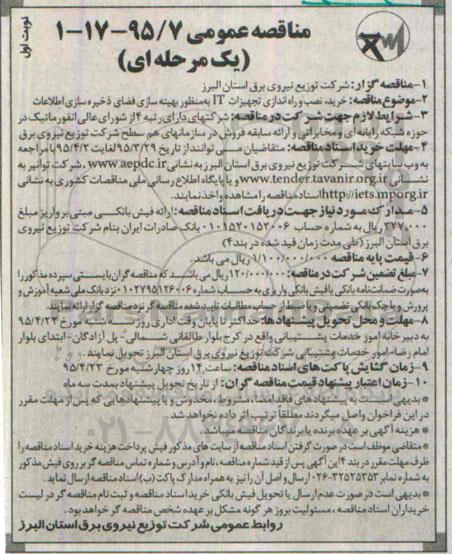 نوبت اول
مناقصه عمومی ۹۵/۷-۱۷-۱
(یک مرحله ای)
۱-مناقصه گزار: شرکت توزیع نیروی برق استان البرز
۲-موضوع مناقصه: خرید، نصب و راه اندازی تجهیزات IT به منظور بهینه سازی فضای ذخیره سازی اطلاعات
۳- شرایط لازم جهت شرکت در مناقصه: شرکتهای دارای رتبه ۴ از شورای عالی انفورماتیک در
حوزه شبکه رایانه ای و مخابراتی و ارائه سابقه فروش در سازمانهای هم سطح شرکت توزیع نیروی برق
۴- مهلت خرید اسناد مناقصه: متقاضیان می توانند از تاریخ ۹۵/۳/۲۹ لغایت ۹۵/۴/۲ با مراجعه
به وب سایتهای شرکت توزیع نیروی برق استان البرز به نشانی www.aepdc.ir، شرکت توانیر به
نشانی www.tender.tavanir.org.ir و یا پایگاه اطلاع رسانی ملی مناقصات کشوری به نشانی
http://iets.mporg.ir اسناد مناقصه را مشاهده و اخذ نمایند.
۵-مدارک مورد نیاز جهت دریافت اسناد مناقصه: ارائه فیش بانکی مبنی بر واریز مبلغ
۳۷۷.۰۰۰ ریال به شماره حساب ۰۱۰۱۵۲۰۱۵۲۰۰۶ بانک صادرات ایران بنام شرکت توزیع نیروی
برق استان البرز (طی مدت زمان قید شده در بند ۴)
۶- قیمت پایه مناقصه ۱/۱۰۰/۰۰۰/۰۰۰ ریال می باشد.
۷-مبلغ تضمین شرکت در مناقصه: ۱۲۰/۰۰۰/۰۰۰ ریال می باشد که مناقصه گران بایستی سپرده مذکور را
به صورت ضمانت نامه بانکی یا فیش بانکی واریزی به حساب شماره ۰۱۰۲۷۹۵۱۲۶۰۰۶ نزد بانک ملی شعبه آموزش و
پرورش و یا چک بانکی تضمینی و یا ضبط از حساب مطالبات تایید شده مناقصه گر نزد مناقصه گزار ارائه نمایند.
۸-مهلت و محل تحویل پیشنهادها: حداکثر تا پایان وقت اداری روز سه شنبه مورخ ۹۵/۴/۲۲
به دبیرخانه امور خدمات پشتیبانی واقع در کرج بلوار طالقانی شمالی- پل آزادگان- ابتدای بلوار
امام رضا- امور خدمات و پشتیبانی شرکت توزیع نیروی برق استان البرز تحویل نمایند.
۹-زمان گشایش پاکت های اسناد مناقصه: ساعت ۱۴ روز چهارشنبه مورخ ۹۵/۴/۲۳
۱۰-زمان اعتبار پیشنهاد قیمت مناقصه گران: از تاریخ تحویل پیشنهاد بمدت سه ماه
* بدیهی است به پیشنهادهای فاقد امضاء، مشروط، مخدوش و یا پیشنهادهایی که پس از مهلت مقرر
در این فراخوان واصل میگردند مطلقا ترتیب اثر داده نخواهد شد.
* هزینه آگهی بر عهده برنده یا برندگان مناقصه میباشد.
* متقاضی موظف است در صورت گرفتن اسناد مناقصه از سایت های مذکور فیش پرداخت هزینه خرید اسناد مناقصه را
ظرف مهلت مقرر در بند ۴ این آگهی پس از قید شماره مناقصه، نام و آدرس و شماره تماس مناقصه گر بر روی فیش مذکور
به شماره نمابر ۳۲۵۲۵۳۵۳-۰۲۶ ارسال و اصل آن را نیز به همراه مدارک پاکت (ب) اسناد مناقصه ارسال نماید.
* بدیهی است در صورت عدم ارسال یا تحویل فیش بانکی خرید اسناد مناقصه و ثبت نام مناقصه گر در لیست
خریداران اسناد مناقصه، مسئولیت بروز هر گونه مشکل بر عهده شخص مناقصه گر خواهد بود.
روابط عمومی شرکت توزیع نیروی برق استان البرز